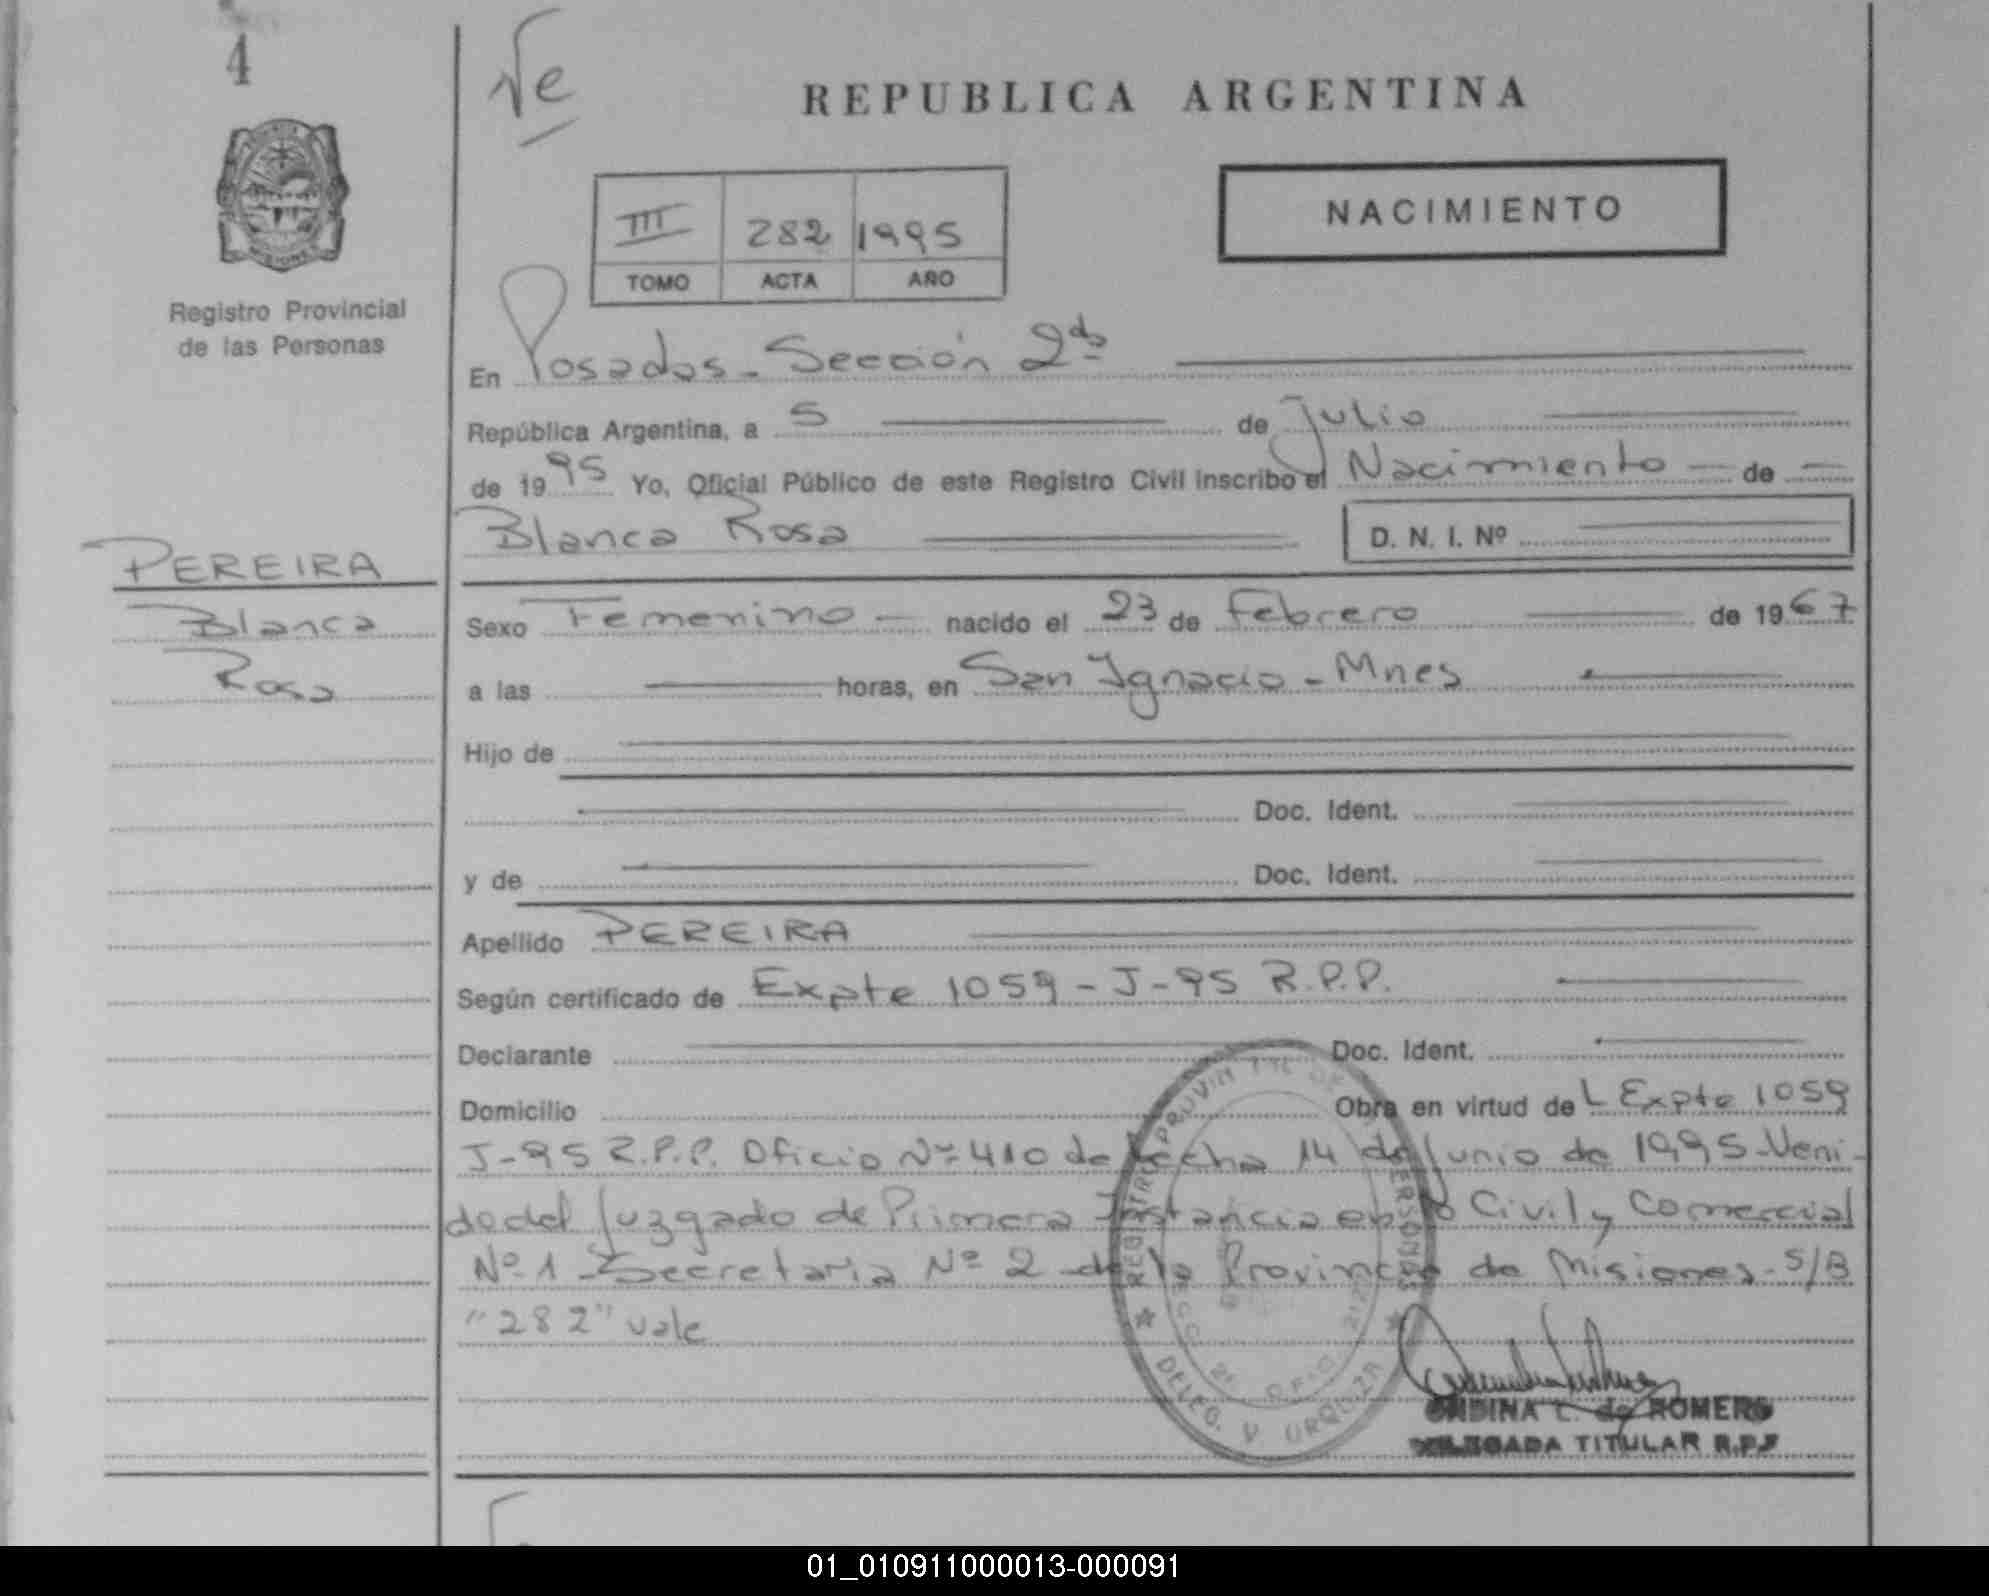 4
Ve
REPUBLICA ARGENTINA
NACIMIENTO
III 282 1995
TOMO ACTA AÑO
Registro Provincial
de las Personas
En Posadas - Sección 2da
República Argentina, a 5 de Julio
de 1995 Yo, Oficial Público de este Registro Civil inscribo el Nacimiento - de -
Blanca Rosa D. N. I. Nº
PEREIRA
Blanca
Rosa
Sexo Femenino - nacido el 23 de Febrero de 1967
a las horas, en San Ignacio - Mnes
Hijo de
Doc. Ident.
y de Doc. Ident.
Apellido PEREIRA
Según certificado de Expte 1059 - J - 95 R.P.P.
Declarante Doc. Ident.
Domicilio Obra en virtud del Expte 1059
J-95 R.P.P. Oficio Nº 410 de fecha 14 de Junio de 1995 - Veni-
do del Juzgado de Primera Instancia en lo Civil y Comercial
Nº 1 - Secretaria Nº 2 de la Provincia de Misiones - S/B
"282" vale
REGISTRO PROVINCIAL DE PERSONAS
SECC. 2ª OFIC. 212
DELEG. V URQUIZA
ONDINA L. de ROMERO
DELEGADA TITULAR R.P.P
01_010911000013-000091